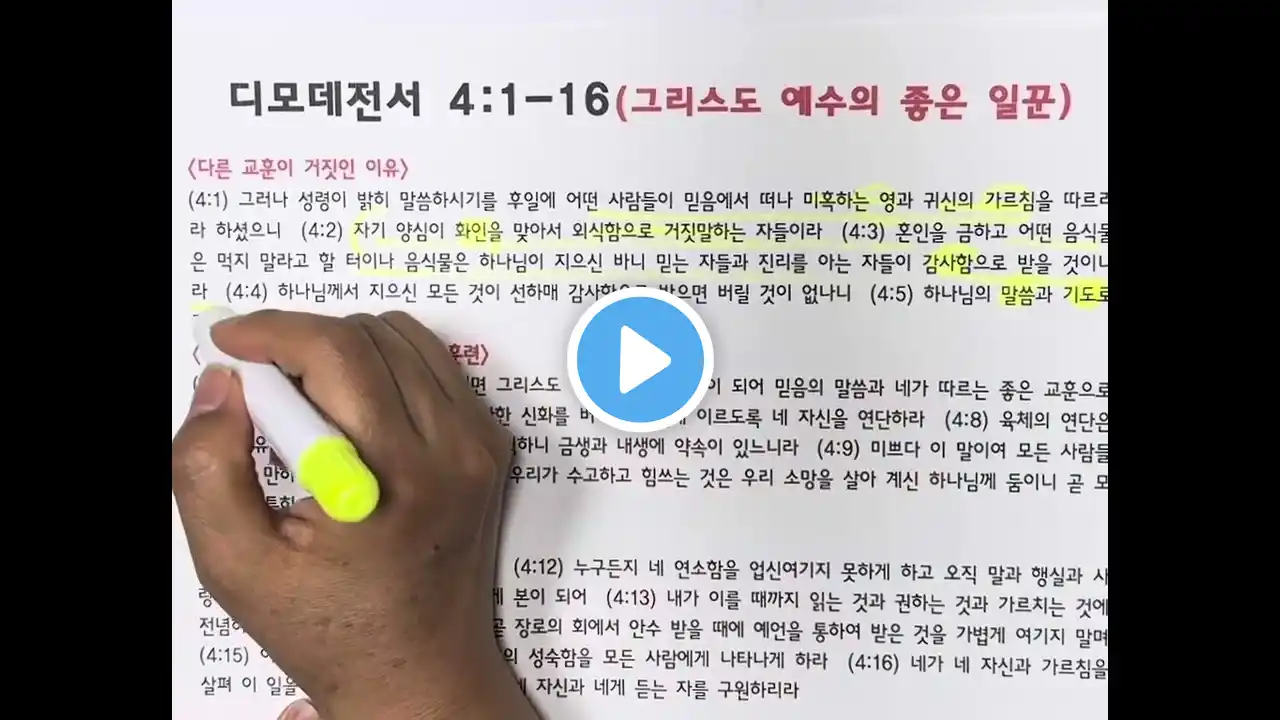 디모데전서 4:1-16(그리스도 예수의 좋은 일꾼)
<다른 교훈이 거짓인 이유>
(4:1) 그러나 성령이 밝히 말씀하시기를 후일에 어떤 사람들이 믿음에서 떠나 미혹하는 영과 귀신의 가르침을 따르리
라 하셨으니 (4:2) 자기 양심이 화인을 맞아서 외식함으로 거짓말하는 자들이라 (4:3) 혼인을 금하고 어떤 음식물
은 먹지 말라고 할 터이나 음식물은 하나님이 지으신 바니 믿는 자들과 진리를 아는 자들이 감사함으로 받을 것이니
라 (4:4) 하나님께서 지으신 모든 것이 선하매 감사함으로 받으면 버릴 것이 없나니 (4:5) 하나님의 말씀과 기도로
훈련>
그리스도 되어 믿음의 말씀과 네가 따르는 좋은 교훈으로
신화를 이르도록 네 자신을 연단하라 (4:8) 육체의 연단은
금생과 내생에 약속이 있느니라 (4:9) 미쁘다 이 말이여 모든 사람들
우리가 수고하고 힘쓰는 것은 우리 소망을 살아 계신 하나님께 둠이니 곧 모
(4:12) 누구든지 네 연소함을 업신여기지 못하게 하고 오직 말과 행실과 사
본이 되어 (4:13) 내가 이를 때까지 읽는 것과 권하는 것과 가르치는 것에
곧 장로의 회에서 안수 받을 때에 예언을 통하여 받은 것을 가볍게 여기지 말며
(4:15) 성숙함을 모든 사람에게 나타나게 하라 (4:16) 네가 네 자신과 가르침을
살펴 이 일을 자신과 네게 듣는 자를 구원하리라